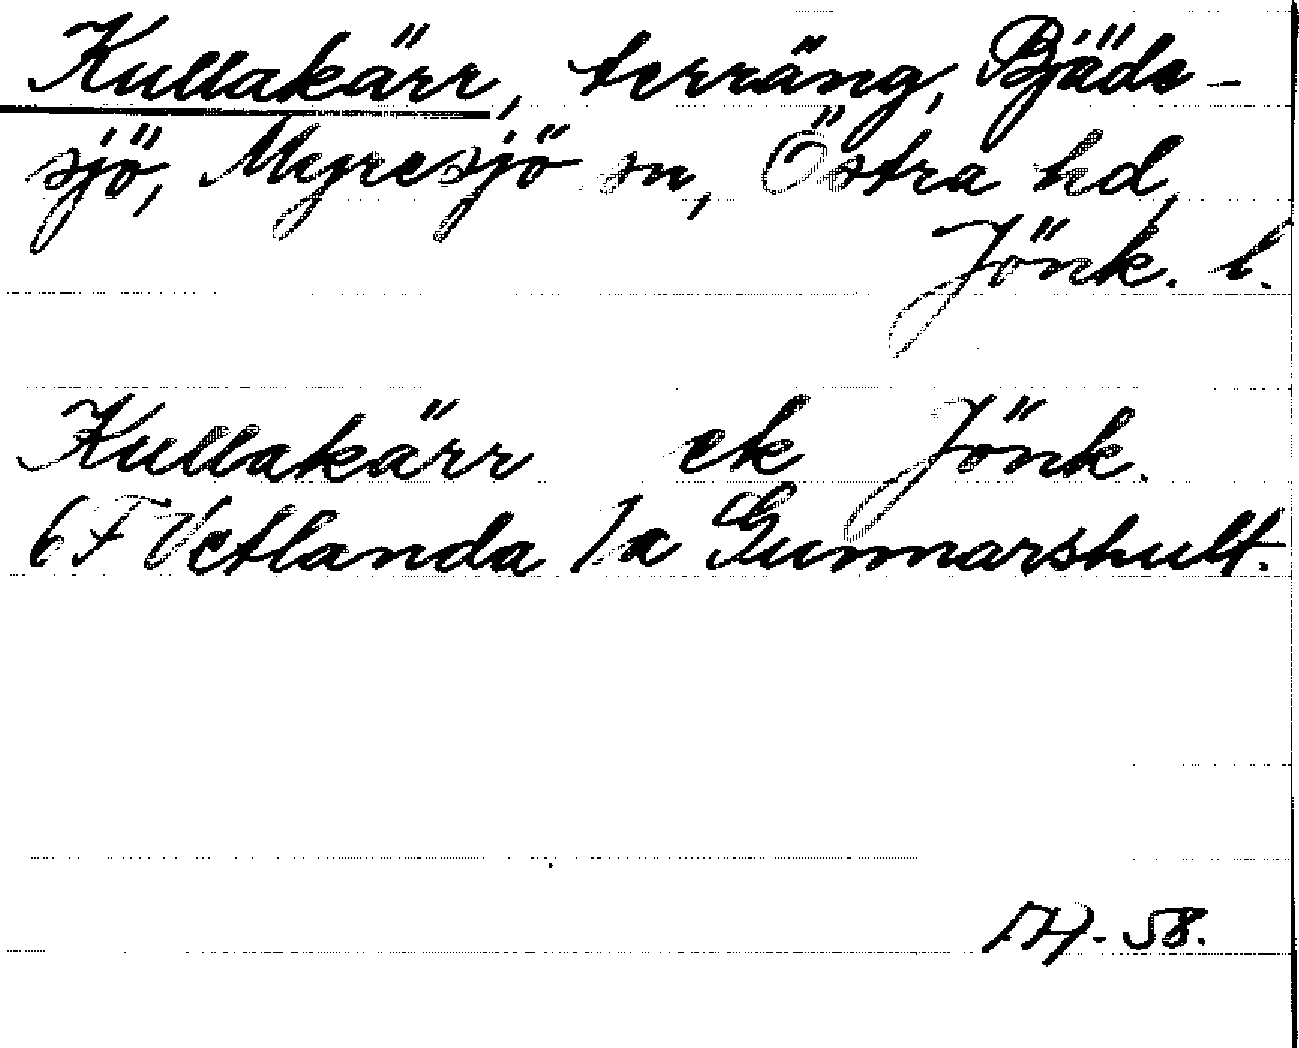 Kullakärr, terräng, Bjäde-
sjö, Myresjö sn, Östra hd,
Jönk. l.
Kullakärr ek Jönk.
6 F Vetlanda 1a Gunnarshult.
-58.